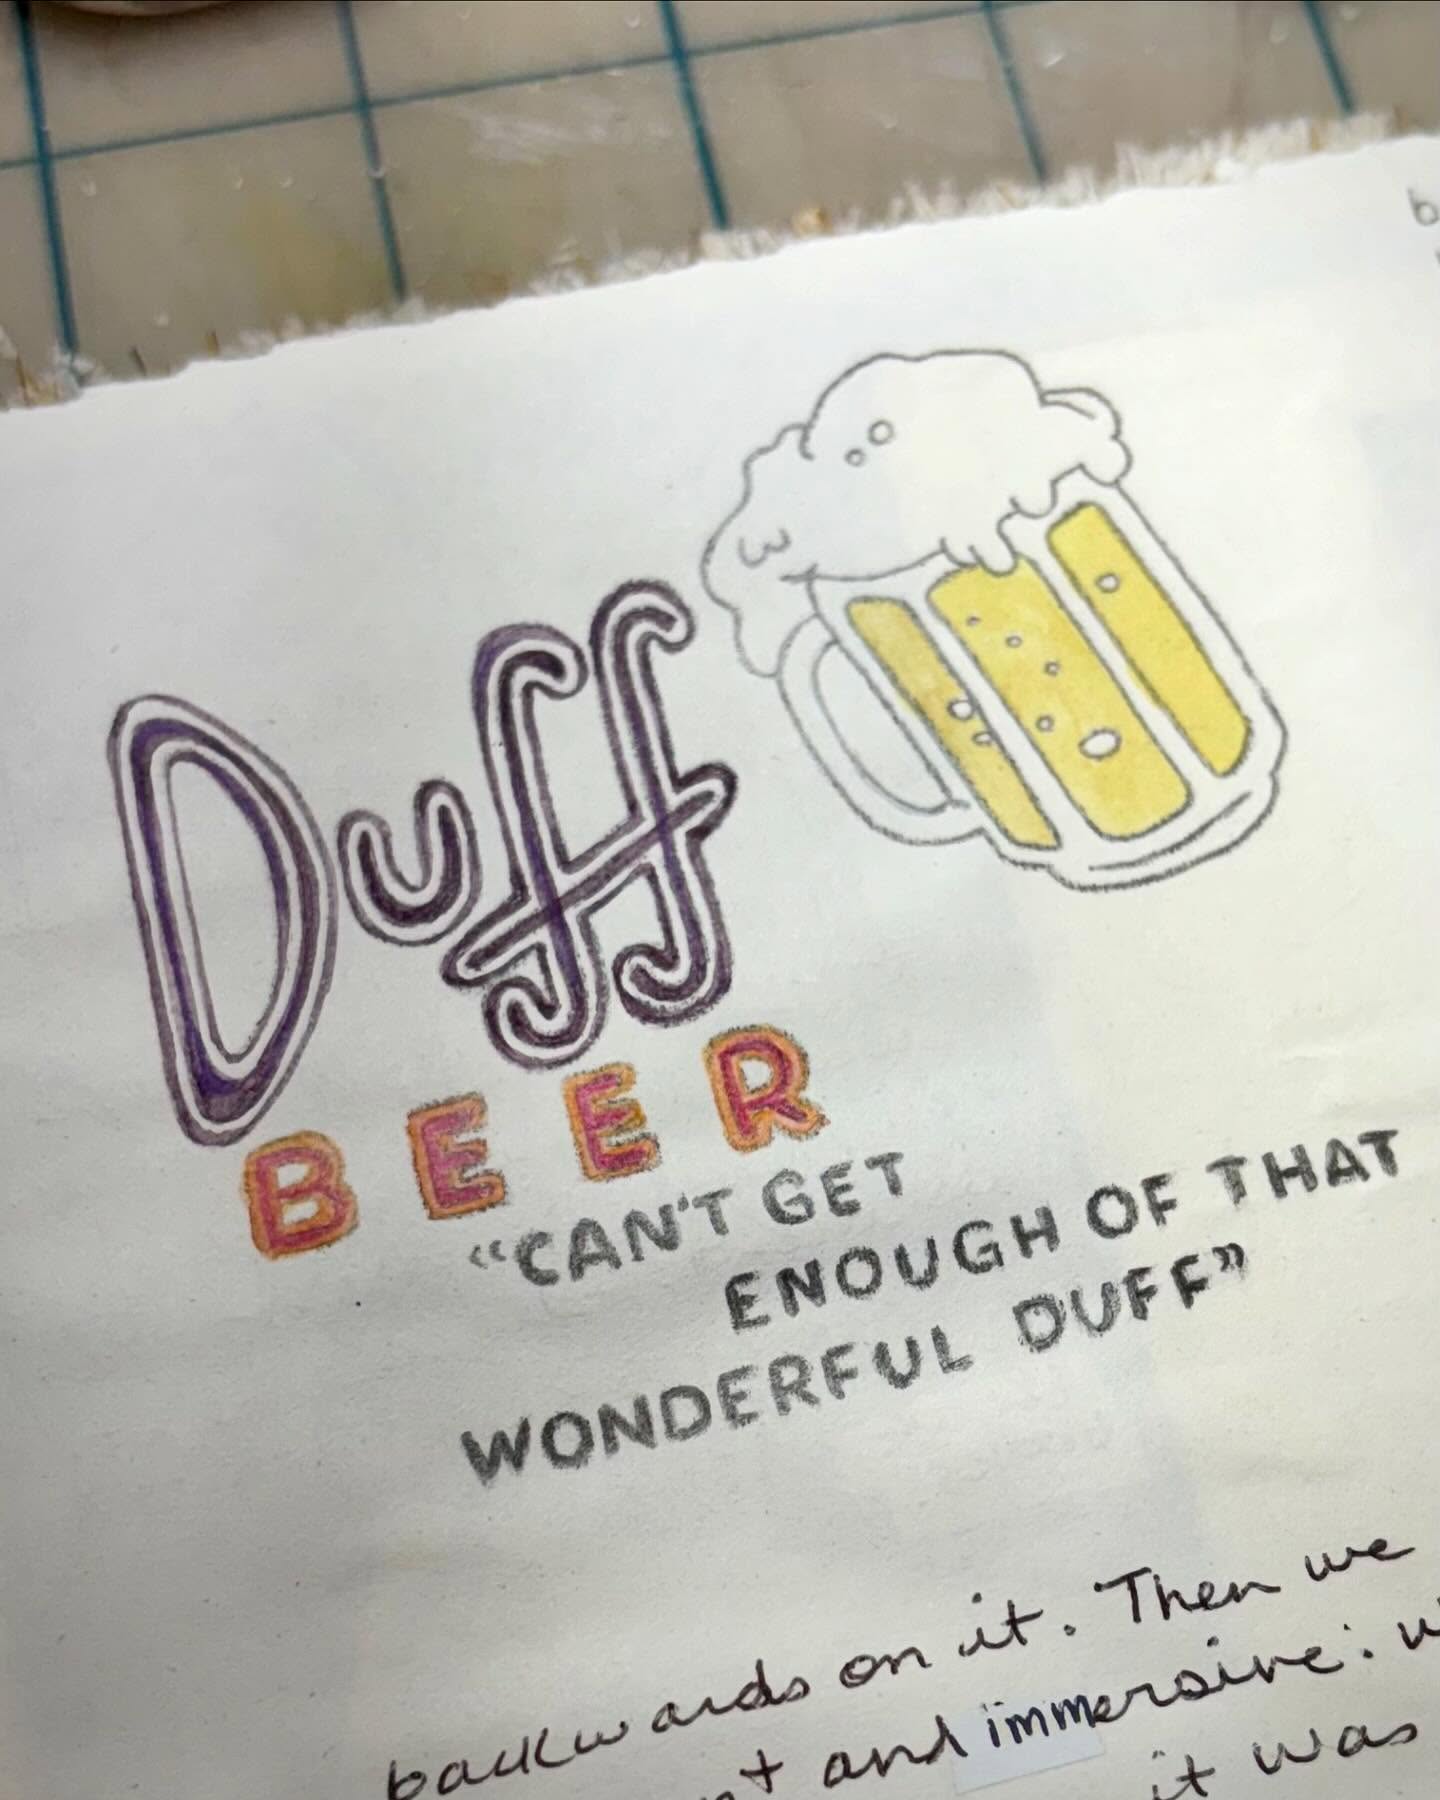 Duff
BEER
"CAN'T GET
ENOUGH OF THAT
WONDERFUL DUFF"
backwards on it. Then we
and immersive: w
it was